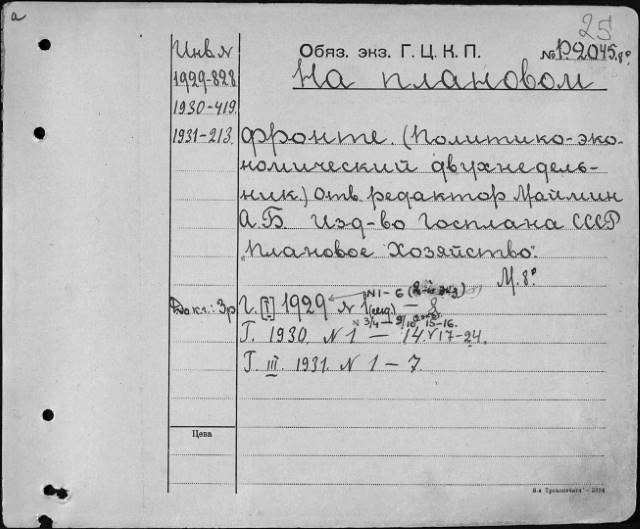 а
25
Инв. №
Обяз. экз. Г. Ц. К. П.
№ Р-2045. 8°.
1929-828
На плановом
1930-419.
1931-213.
фронте. (Политико-эко-
номический двухнедель-
ник.) Отв. редактор Маймин
А.Б. Изд-во Госплана СССР
"Плановое Хозяйство".
М. 8°
№ 1-6
Г. [I] 1929 № 1 - 8
№ 3/4 - 9/10 15-16.
Г. 1930. № 1 - 14. 17-24.
Г. III. 1931. № 1 - 7.
Цена